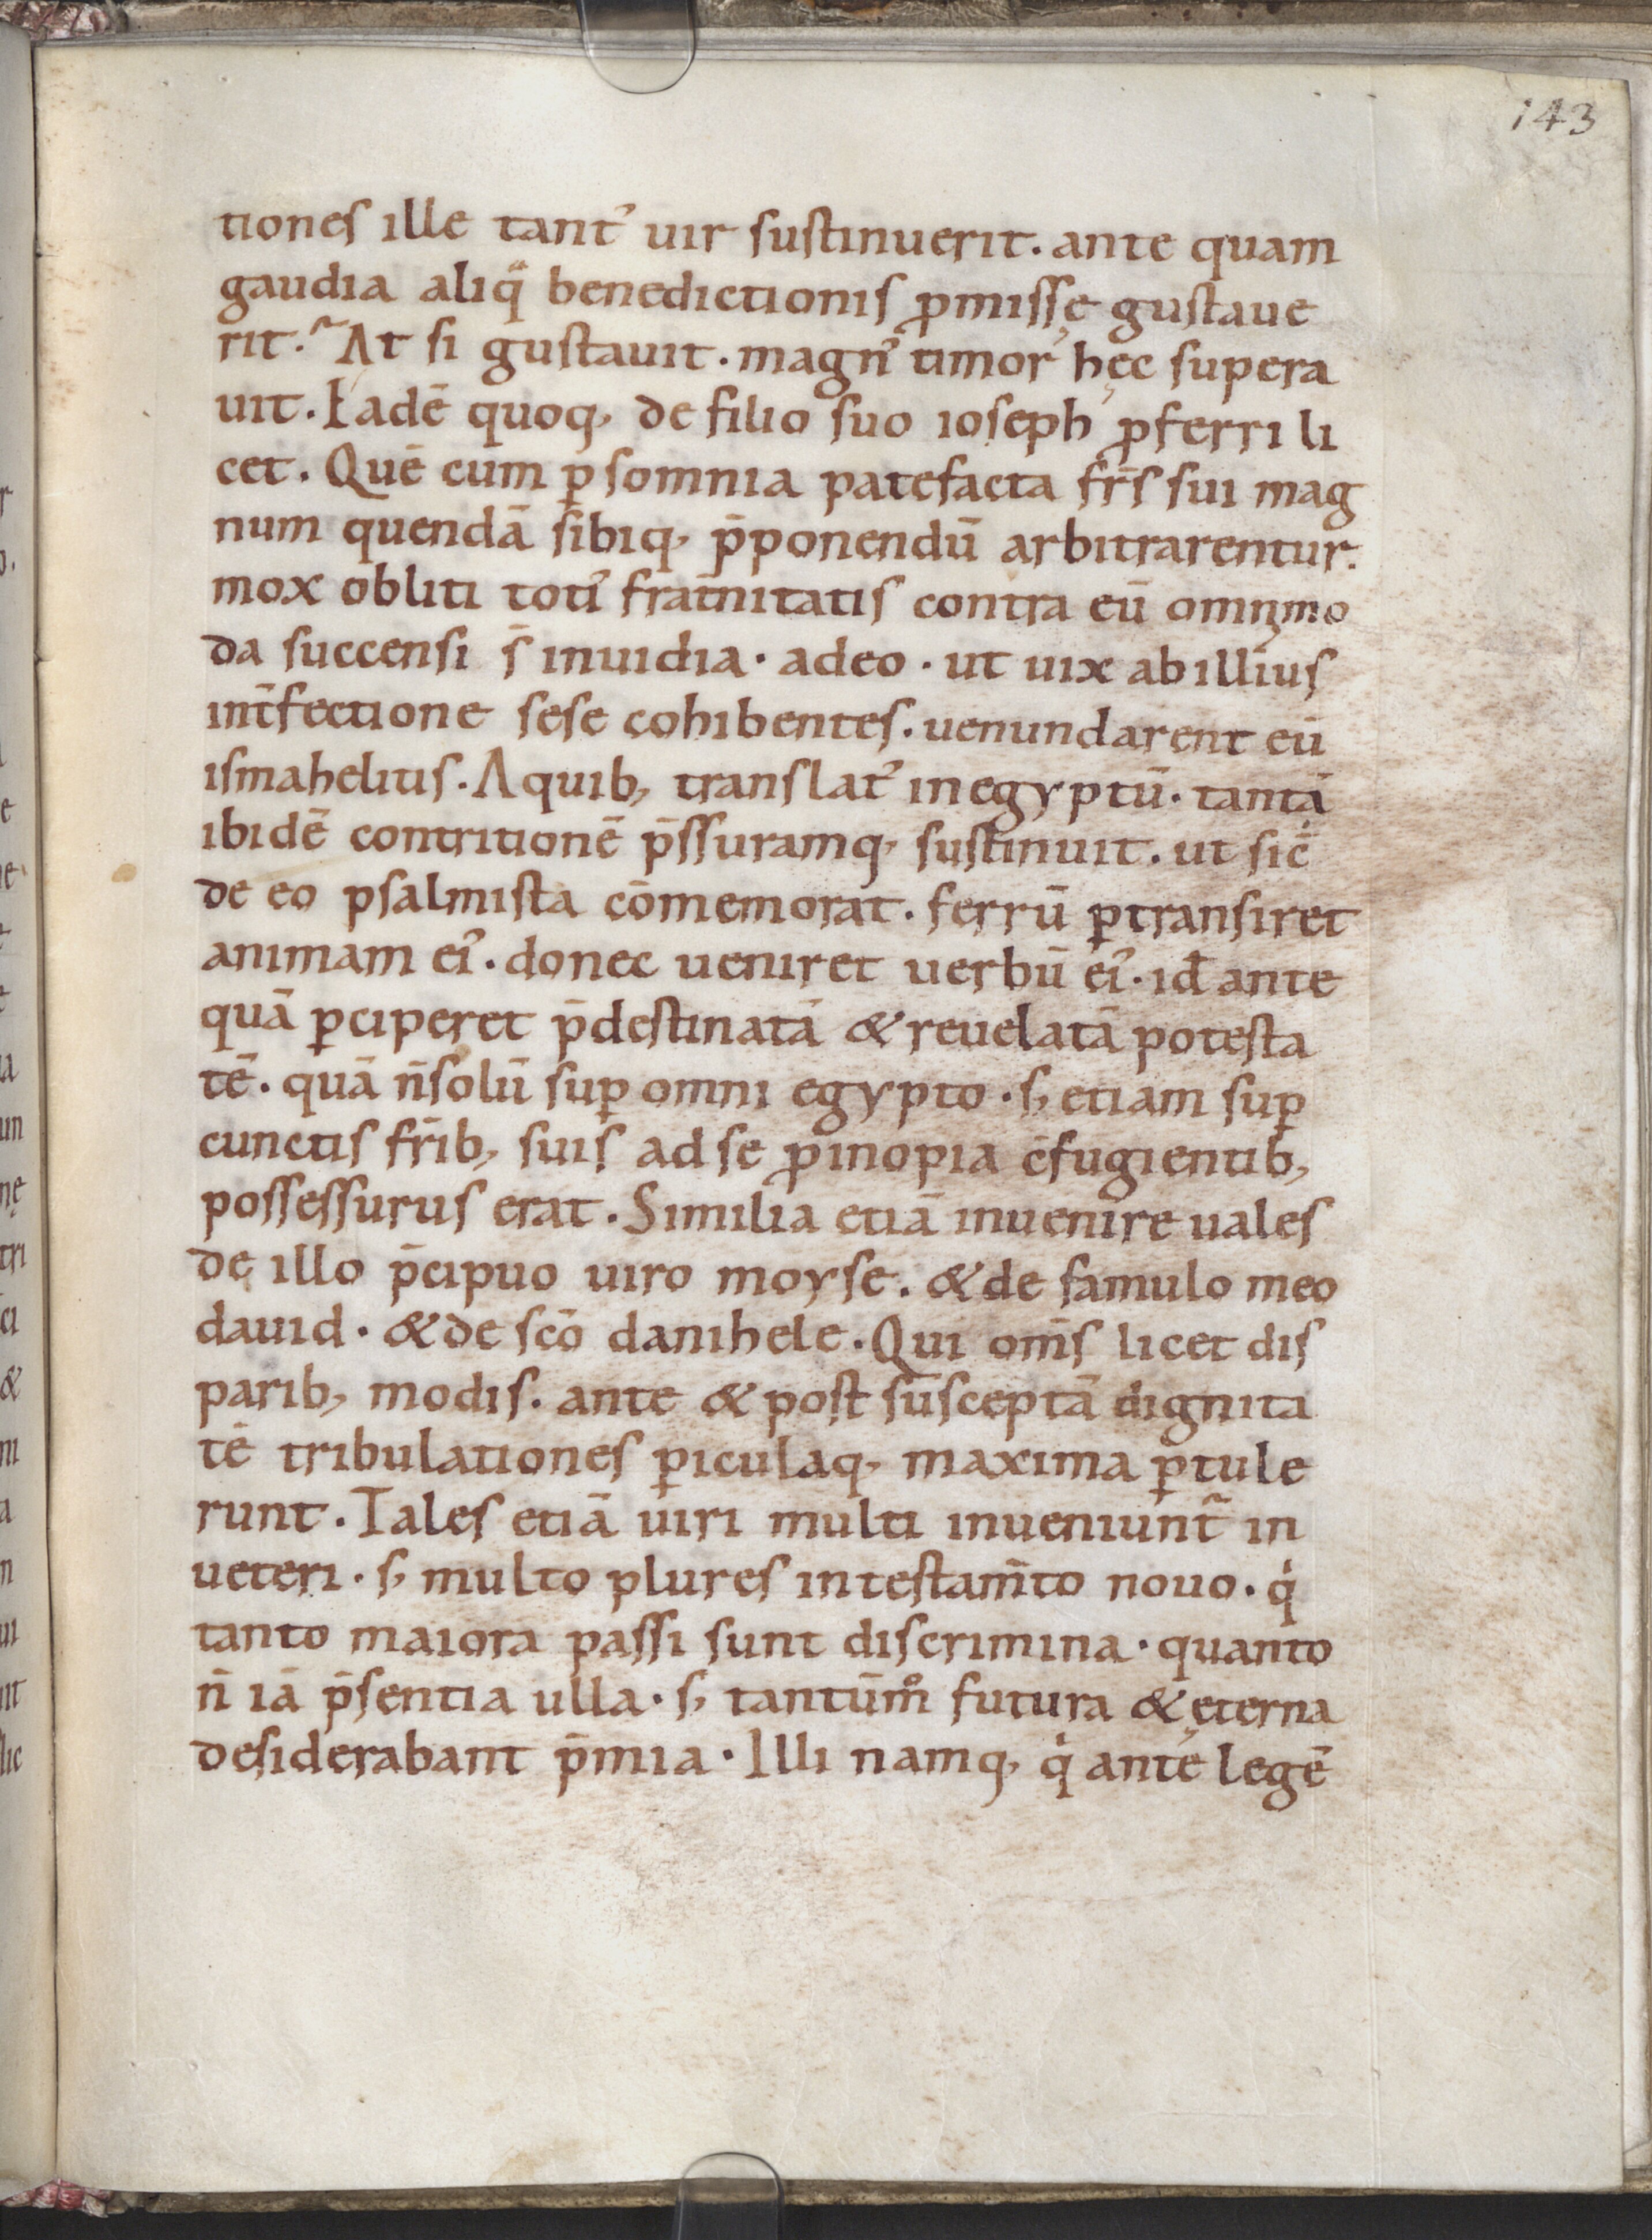 143
tiones ille tant᾽ uir sustinuerit. ante quam
gaudia aliq̈ benedictionis ꝓmissę gustaue
rit. At si gustauit. magn᾽ timor᾽ hęc supera
uit. Eadē quoq, de filio suo ioseph ꝓferri li
cet. Quē cum ꝑ somnia patefacta fr̄s sui mag
num quendā sibiq, p̄ponendū arbitrarentur.
mox obliti toti᾽ frat̄nitatis contra eū omnimo
da succensi s̄ inuidia. adeo. ut uix ab illius
int̄fectione sese cohibentes. uenundarent eū
ismahelitis. A quib, translat᾽ in egyptū. tantā
ibidē contritionē p̄ssuramq, sustinuit. ut sic̄
de eo psalmista cōmemorat. ferrū ꝑtransiret
animam ei᾽. donec ueniret uerbū ei᾽. id ante
quā ꝑciperet p̄destinatā & reuelatā potesta
tē. quā n̄ solū suꝑ omni egypto. s, etiam suꝑ
cunctis fr̄ib, suis ad se ꝓ inopia c̄fugientib,
possessurus erat. Similia etiā inuenire uales
de illo p̄cipuo uiro moyse. & de famulo meo
dauid. & de sc̄o danihele. Qui om̄s licet dis
parib, modis. ante & post susceptā dignita
tē tribulationes ꝑiculaq, maxima ꝑtule
runt. Tales etiā uiri multi inueniunt᷑ in
ueteri. s, multo plures in testam̄to nouo. qͥ
tanto maiora passi sunt discrimina. quanto
n̄ iā p̄sentia ulla. s, tantūmͦ futura & ęterna
desiderabant p̄mia. Illi namq, qͥ ante legē